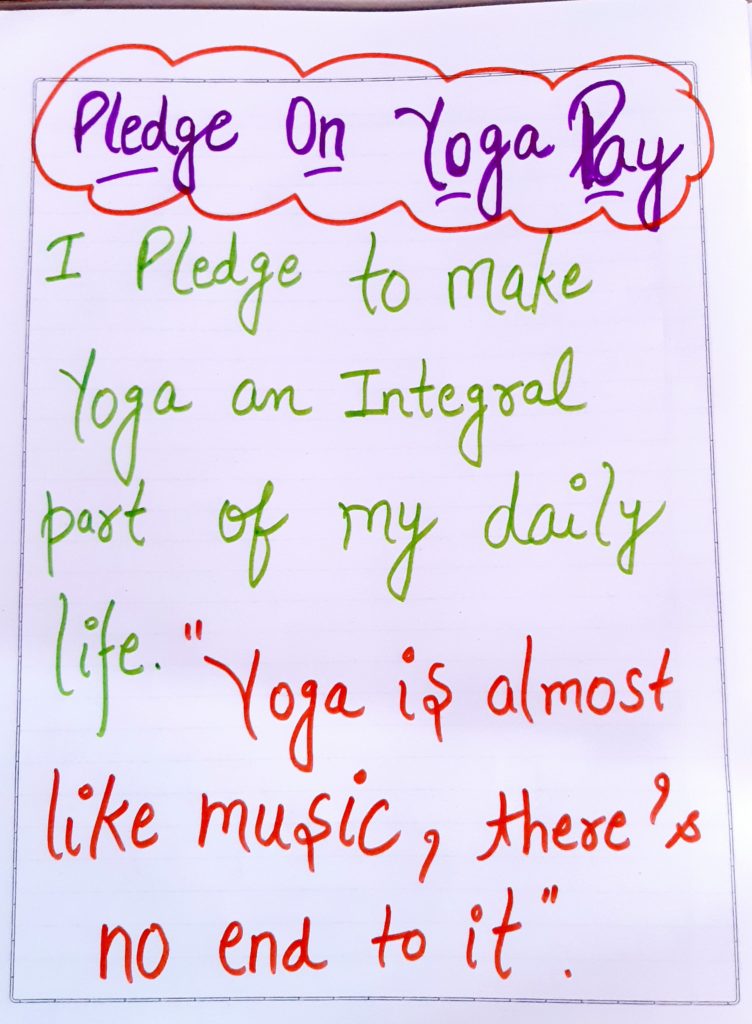 Pledge On Yoga Day
I Pledge to make
Yoga an Integral
part of my daily
life. "Yoga is almost
like music, there's
no end to it".